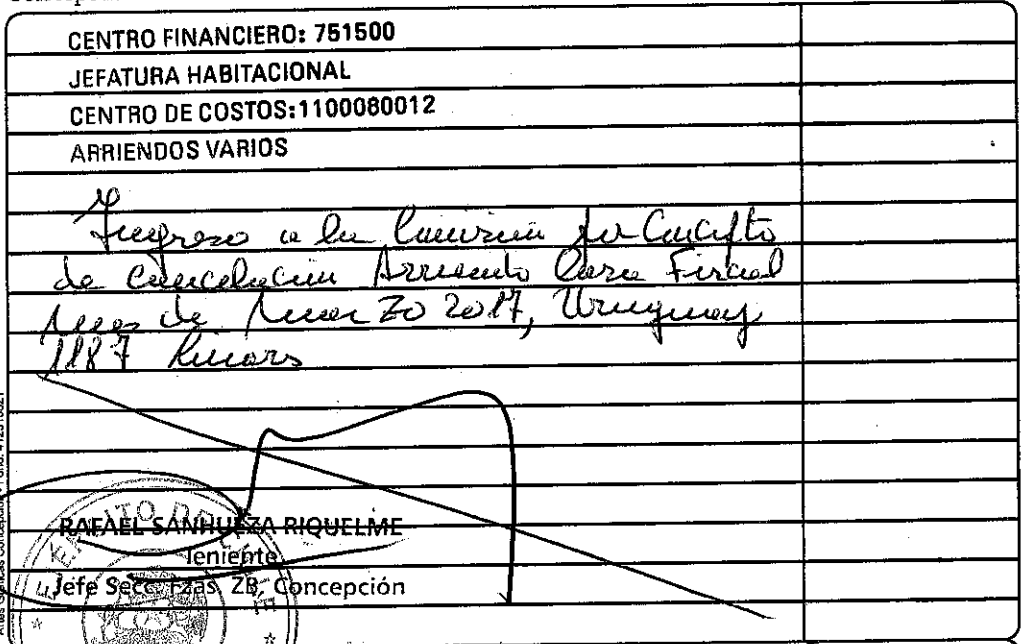 CENTRO FINANCIERO: 751500
JEFATURA HABITACIONAL
CENTRO DE COSTOS:1100080012
ARRIENDOS VARIOS
Ingreso a la por Concepto
de cancelación Arriendo Casa Fiscal
Mes de Marzo 2017, Uruguay
1187
RAFAEL SANHUEZA RIQUELME
Teniente
Jefe Secc. Fzas. ZB, Concepción